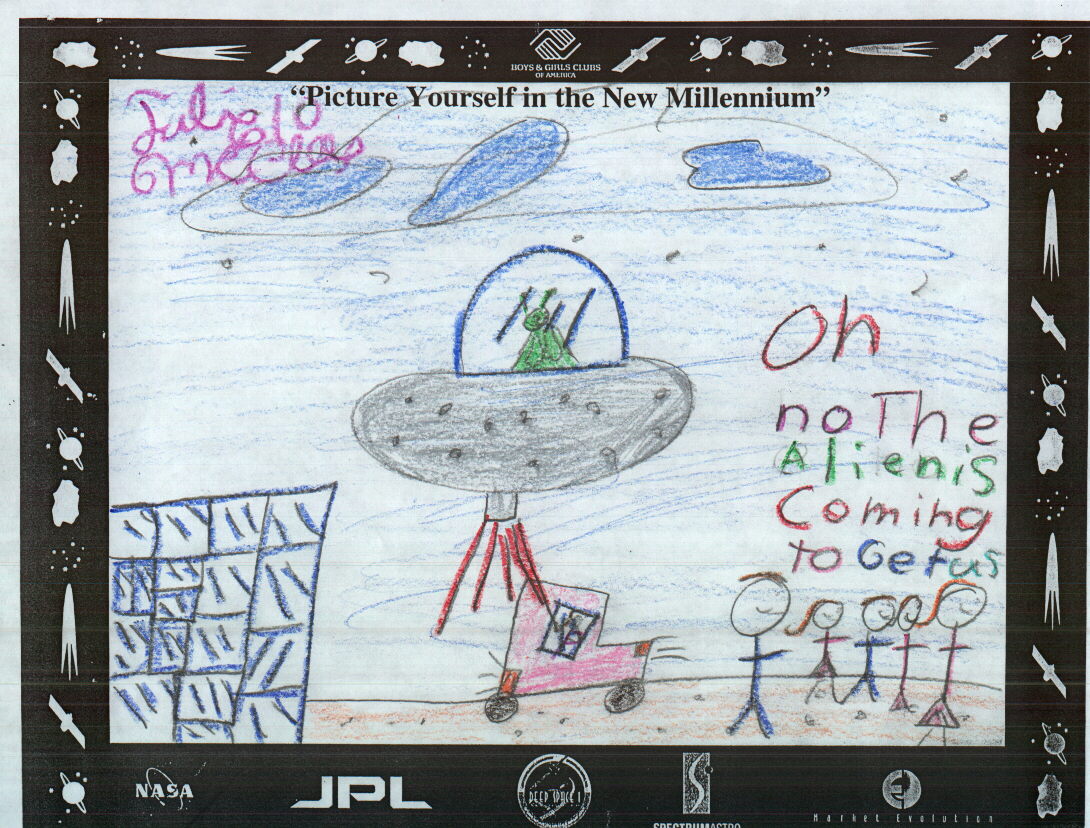 BOYS & GIRLS CLUBS
OF AMERICA
“Picture Yourself in the New Millennium”
10
Oh
no The
Alien is
Coming
to Get us
NASA
JPL
DEEP SPACE 1
SPECTRUMASTRO
Market Evolution